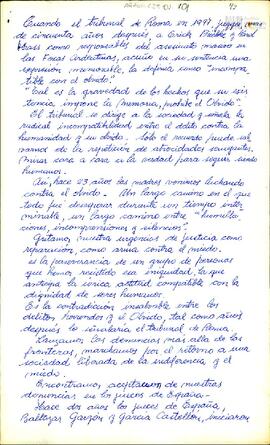 Cuando el tribunal de Roma en 1997, juzgó, más
de cincuenta años después, a Erick Priebke y Karl
Hass como responsables del asesinato masivo en
las Fosas Ardeatinas, acuñó en su sentencia una
expresión memorable, la definía como "incompa-
tible con el olvido".
"Cual es la gravedad de los hechos que su exis-
tencia impone la Memoria, prohibe el Olvido".
El tribunal se dirige a la sociedad y señala la
radical incompatibilidad entre el delito contra la
humanidad y su olvido. Solo el recuerdo puede sal-
varnos de la repetición de atrocidades semejantes.
Mirar cara a cara a la verdad para seguir siendo
humanos.
Así, hace 23 años las madres venimos luchando
contra el olvido. Un largo camino en el que
todo fué desaparecer durante un tiempo inter-
minable, un largo camino entre "humilla-
ciones, incomprensiones y silencios".
Gritamos nuestra urgencia de justicia como
reparación, como arma contra el miedo.
Es la perseverancia de un grupo de personas
que hemos resistido esa iniquidad, la que
anticipa la única actitud compatible con la
dignidad de seres humanos.
Es la contradicción insalvable entre los
delitos horrendos y el Olvido, tal como años
después lo señalaría el tribunal de Roma.
Lanzamos las denuncias mas allá de las
fronteras, marchamos por el retorno a una
sociedad liberada de la indiferencia y el
miedo.
Encontramos aceptación de nuestras
denuncias en los jueces de España.
Hace dos años los jueces de España,
Baltazar Garzón y García Castellón, iniciaron